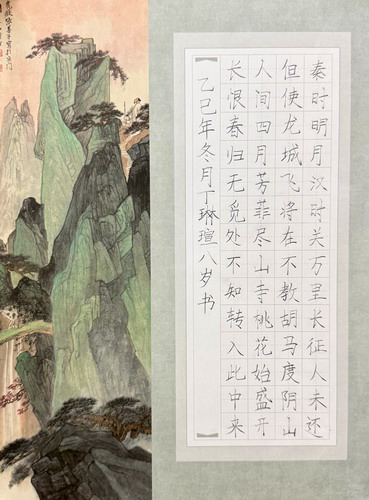 秦时明月汉时关万里长征人未还
但使龙城飞将在不教胡马度阴山
人间四月芳菲尽山寺桃花始盛开
长恨春归无觅处不知转入此中来
乙巳年冬月丁琳瑄八岁书